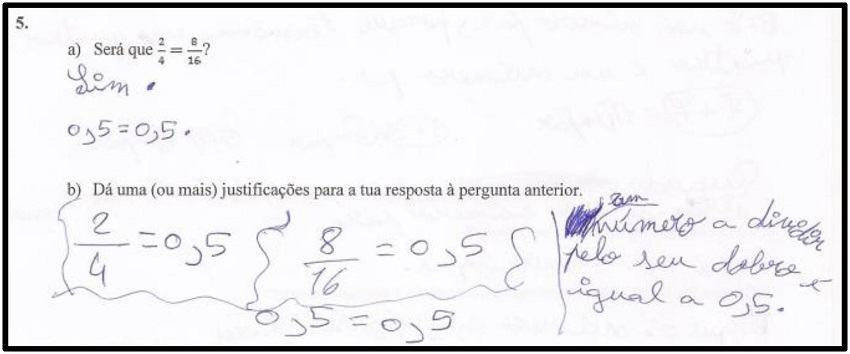 5.
a) Será que 2/4 = 8/16?
Sim.
0,5=0,5.
b) Dá uma (ou mais) justificações para a tua resposta à pergunta anterior.
2/4 = 0,5 8/16 = 0,5
0,5 = 0,5
um
número a dividir
pelo seu dobro é
igual a 0,5.